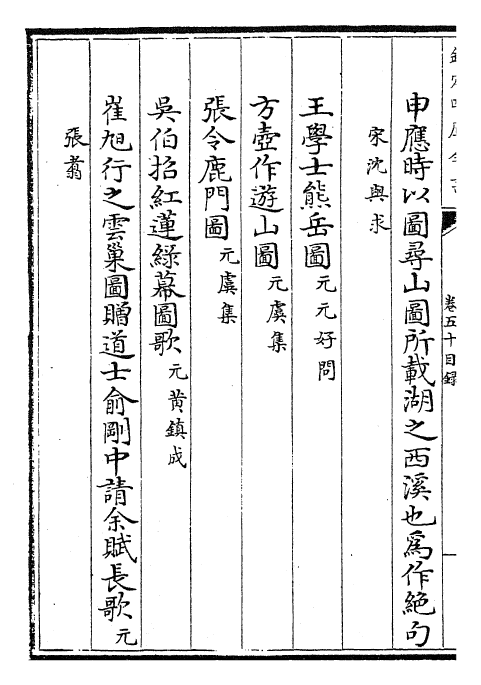 卷五十目錄
申應時以圖尋山圖所載湖之西溪也爲作絶句
宋沈與求
王學士熊岳圖 元元好問
方壺作遊山圖 元虞集
張令鹿門圖 元虞集
吳伯招紅蓮綠幕圖歌 元黄鎮成
崔旭行之雲巢圖贈道士俞剛中請余賦長歌 元
張翥